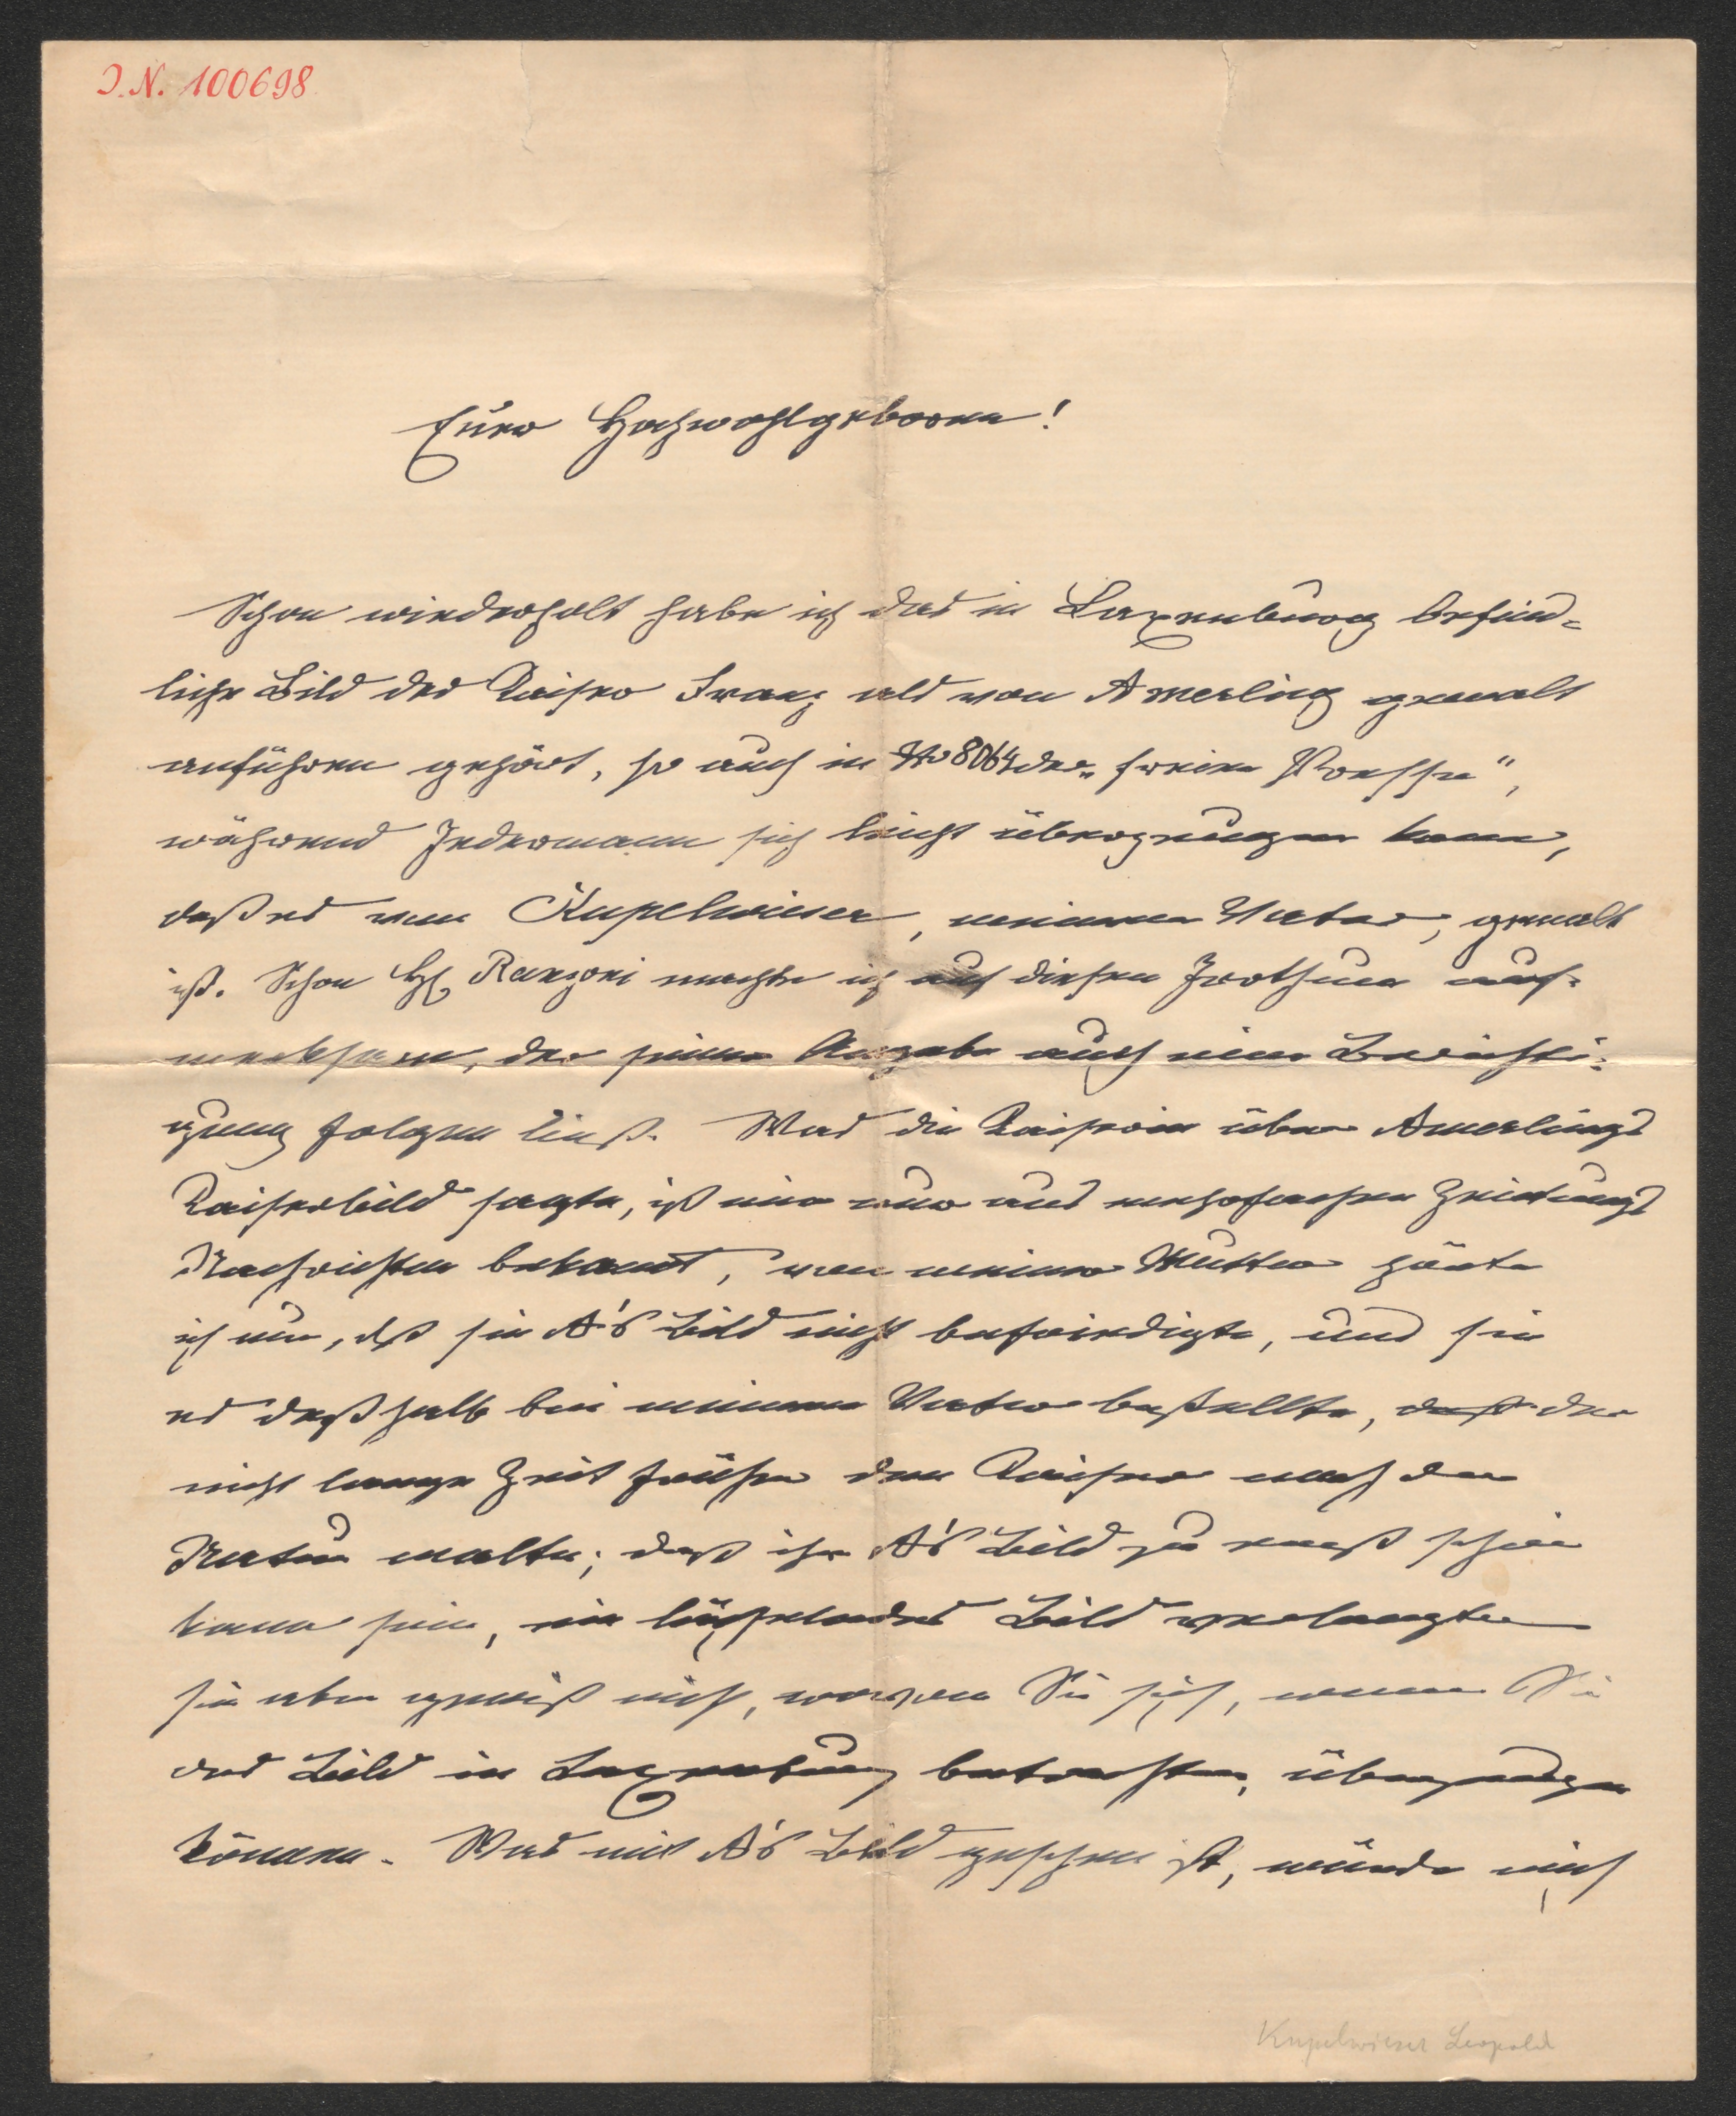 I.N. 100698
Euer Hochwohlgeboren!
Schon wiederholt habe ich das in Laxenburg befind=
liche Bild des Kaiser Franz als von Amerling gemalt
anführen gehört, so auch in No 8064 der „freien Presse",
während Jedermann sich leicht überzeugen kann,
daß es von Kupelwieser, meinem Vater, gemalt
ist. Schon H. Ranzoni machte ich auf diesen Irrthum auf=
merksam, der seiner Angabe auch eine Berichti=
gung folgen ließ. Was die Kaiserin über Amerlings
Kaiserbild sagte, ist mir nur aus Zeitungs
Nachrichten bekannt, von meiner Mutter hörte
ich nur, daß sie A's Bild nicht befriedigte, und sie
es deßhalb bei meinem Vater bestellte, daß der
nicht lange Zeit früher den Kaiser nach der
Natur malte; daß ihr A's Bild zu ernst schien
kann sein, ein lächelndes Bild verlangte
sie aber gewiß nicht, wovon Sie sich, wenn Sie
das Bild in Laxenburg betrachten, überzeugen
können. Was mit A's Bild geschehen ist, würde mich
Kupelwieser Leopold